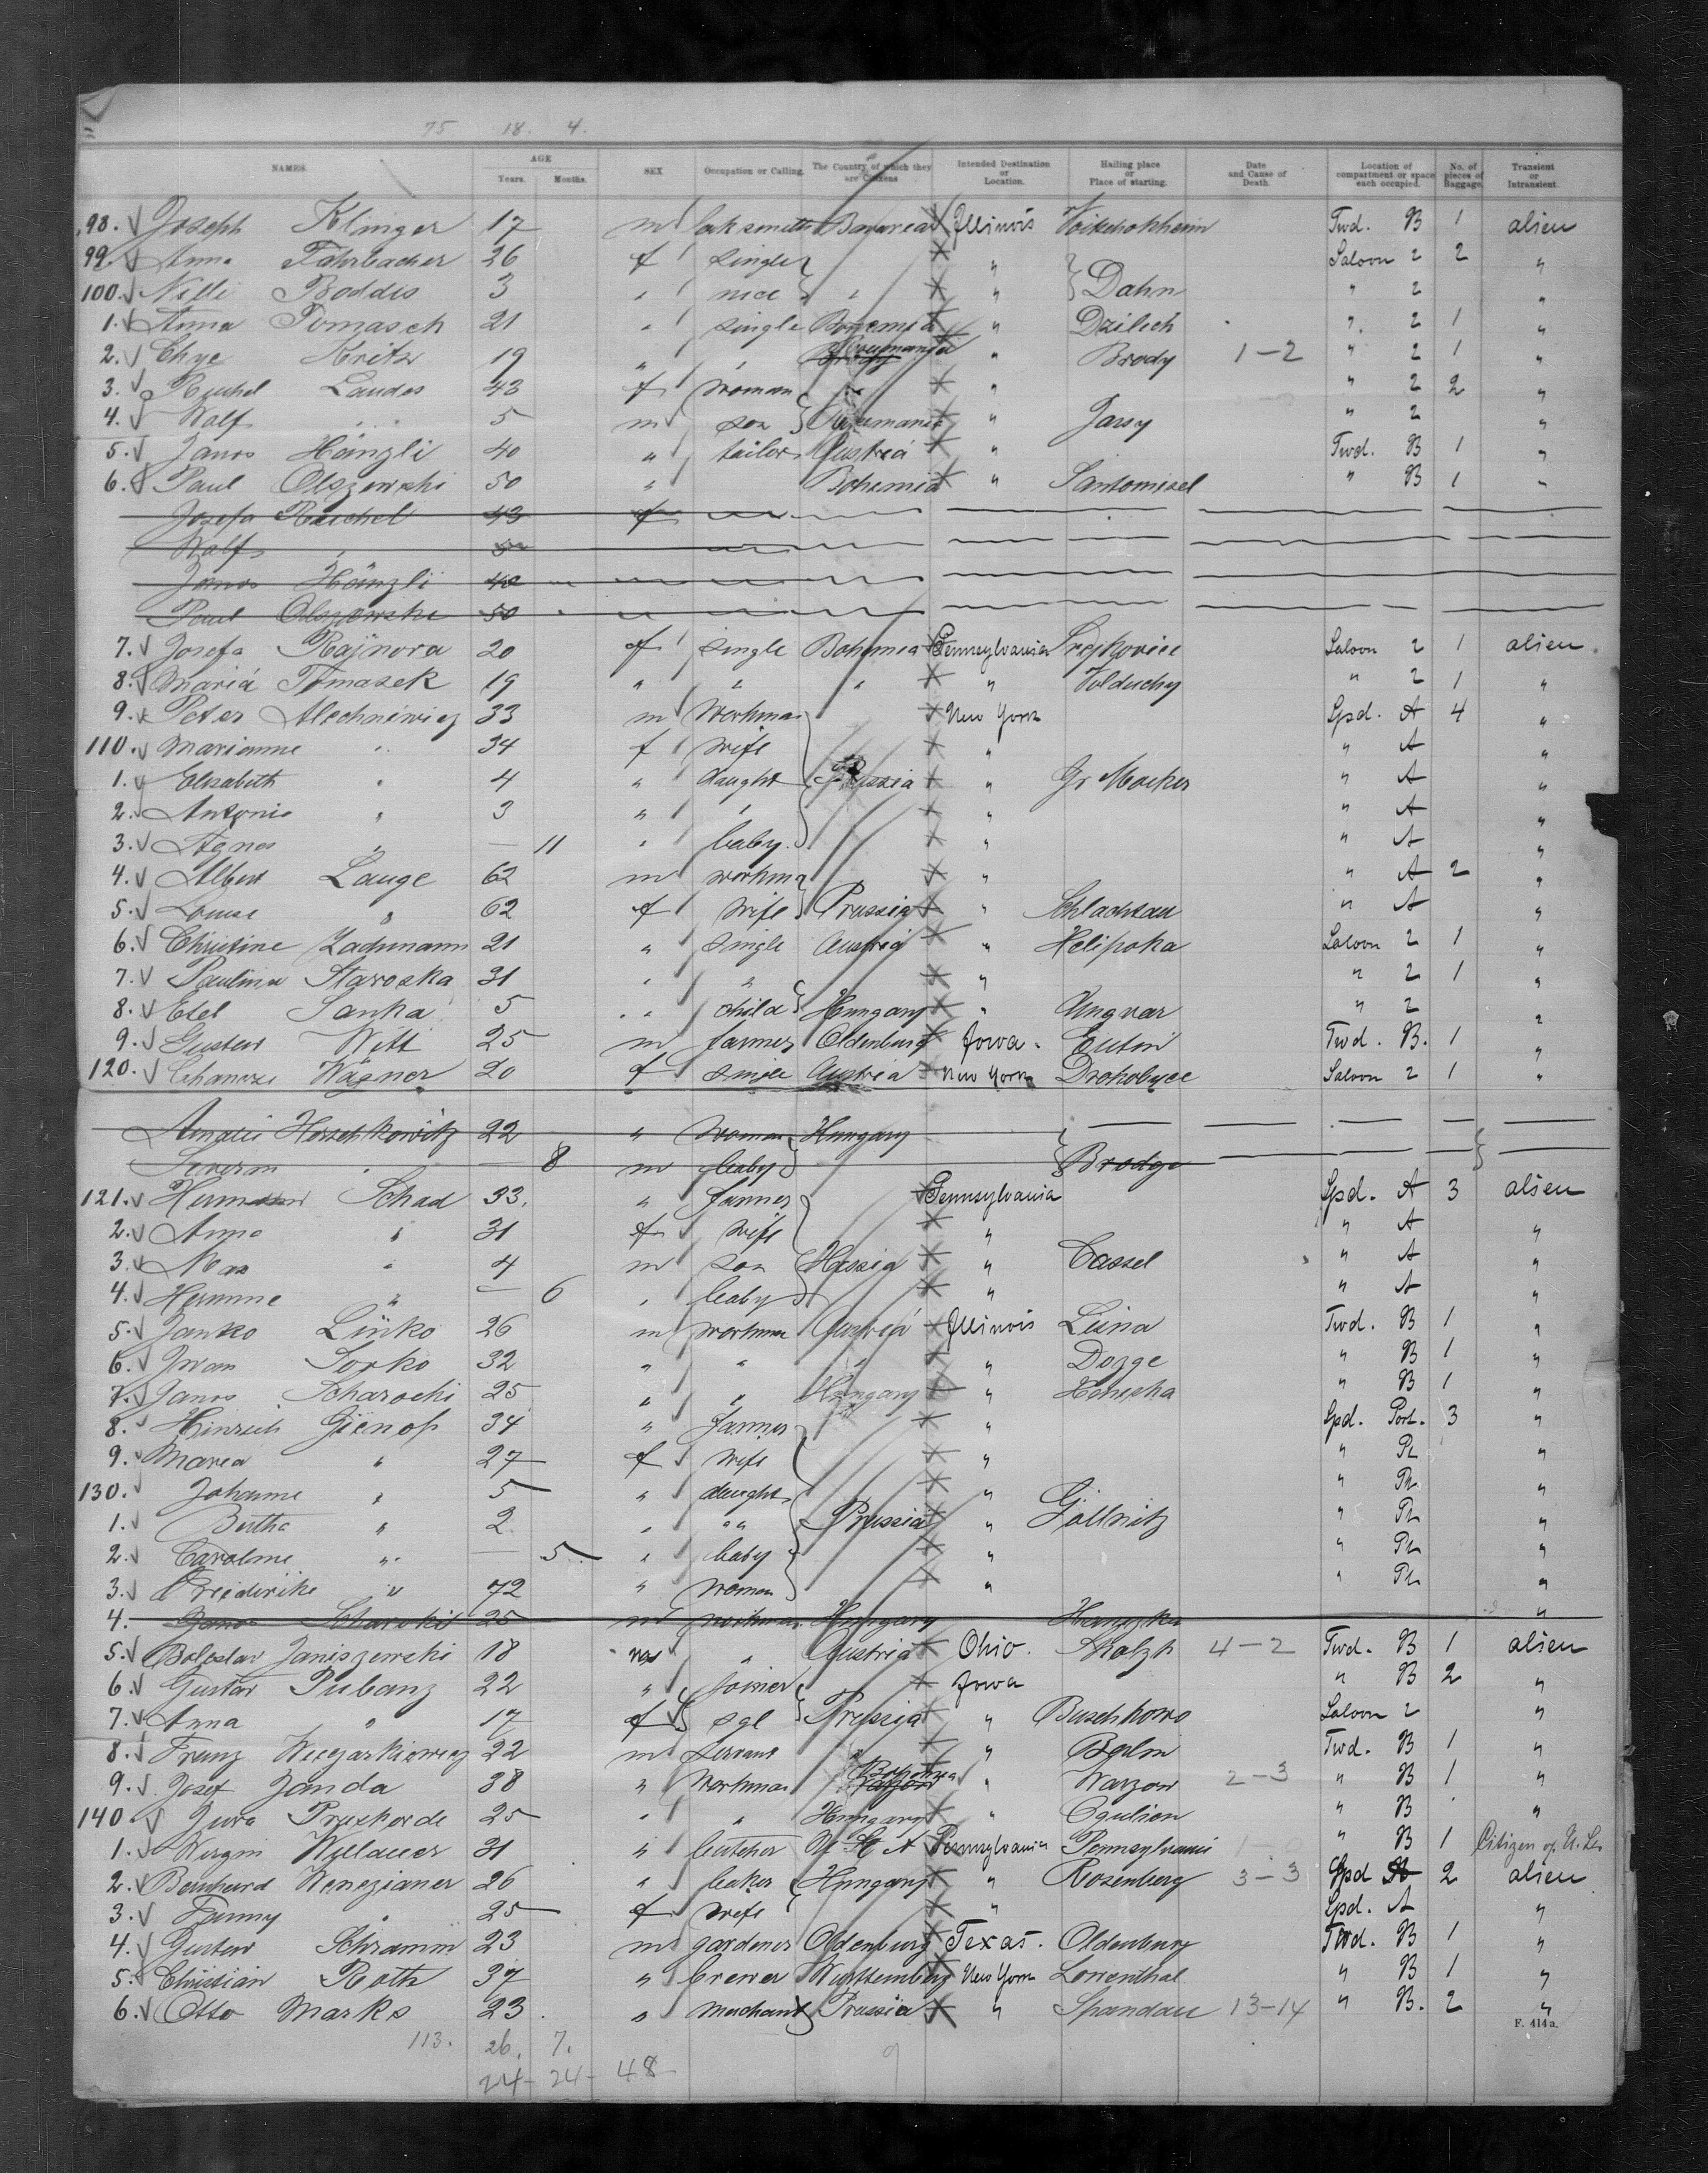 75 18. 4.
NAMES. AGE Years. Months. SEX Occupation or Calling. The Country of which they are Citizens Intended Destination or Location. Hailing place or Place of starting. Date and Cause of Death. Location of compartment or space each occupied. No. of pieces of Baggage. Transient or Intransient.
98. Joseph Klinger 17 m Bavaria Illinois Twd. B 1 alien
99. Anna Fahrbacher 26 f single " Saloon 2 2 "
100. Nelli Boddis 3 " nice " " Dahn " 2 "
1. Anna Tomasch 21 " single Bohemia " Dzilich " 2 1 "
2. Chye Kritz 19 " " Roumania " Brody 1-2 " 2 1 "
3. Reichel Landes 43 f woman " " 2 2 "
4. Wolf " 5 m son Roumania " Jassy " 2 "
5. Janos Hänzli 40 " tailor Austria " Twd. B 1 "
6. Paul Olszewski 50 " Bohemia " Santomisel " B 1 "
Josefa Reichel 43 f
Wolf " 5
Janos Hänzli 40
Paul Olszewski 50
7. Josefa Rajnora 20 f single Bohemia Pennsylvania Saloon 2 1 alien
8. Maria Tomasek 19 " " " " Volduchy " 2 1 "
9. Peter Alechniewicz 33 m Workman New York Spd. A 4 "
110. Marianne " 34 f wife " " A "
1. Elisabeth " 4 " daught Russia " Gr Mocker " A "
2. Antonie " 3 " " " " A "
3. Agnes " — 11 " baby " " A "
4. Albert Lange 62 m workman " " A 2 "
5. Louise " 62 f wife Prussia " Schlachtau " A "
6. Christine Zachmann 21 " single Austria " Helipoka Saloon 2 1 "
7. Paulina Staroska 31 " " " " 2 1 "
8. Etel Sanka 5 " child Hungary " Ungvar " 2 "
9. Gustav Witt 25 m farmer Oldenburg Iowa. Eutin Twd. B. 1 "
120. Wagner 20 f single Austria New York Drohobyce Saloon 2 1 "
Amalie Herschkowitz 22 " woman Hungary
Severin " — 8 m baby Brodge
121. Hermann Schad 33. " farmer Pennsylvania Spd. A 3 alien
2. Anna " 31 f wife " " A "
3. Max " 4 m son Hessia " Cassel " A "
4. Hermine " — 6 " baby " " A "
5. Janko Linko 26 m workman Austria Illinois Liina Twd. B 1 "
6. Iwan Sorko 32 " " " " Dozge " B 1 "
7. Janos Scharocki 25 " " Hungary " " B 1 "
8. Hinrich Gienop 34 " farmer " Spd. Port. 3 "
9. Maria " 27 f wife " " Pt "
130. Johanne " 5 " daught " " Pt "
1. Bertha " 2 " " Prussia " Göllnitz " Pt "
2. Caroline " — 5 " baby " " Pt "
3. Freiderike " 72 " woman " " Pt "
4. Janos Scharokii 25 m workman Hungary "
5. Boleslav Janiszewski 18 m " Austria Ohio. 4-2 Twd. B 1 alien
6. Gustav Pubanz 22 " joiner Iowa " B 2 "
7. Anna " 17 f sgl Prussia " Buschkowo Saloon 2 "
8. Franz 22 m servant " Twd. B 1 "
9. Josef Janda 38 " Workman Bohemia " Warzow 2-3 " B 1 "
140 Jura 25 " " Hungary " Ogulion " B "
1. 31 " butcher U S A Pennsylvania Pennsylvania " B 1 Citizen of U. S.
2. Bernhard Venezianer 26 " baker Hungary " Rosenberg 3-3 Spd A 2 alien
3. Fanny " 25 f wife " Spd. A "
4. Gustav Schramm 23 m gardener Oldenburg Texas. Oldenburg Twd. B 1 "
5. Christian Roth 37 " brewer Württemberg New York Lowenthal " B 1 "
6. Otto Marks 23 " merchant Prussia " Spandau 13-14 " B. 2 "
F. 414a.
113. 26. 7.
24- 24- 48-